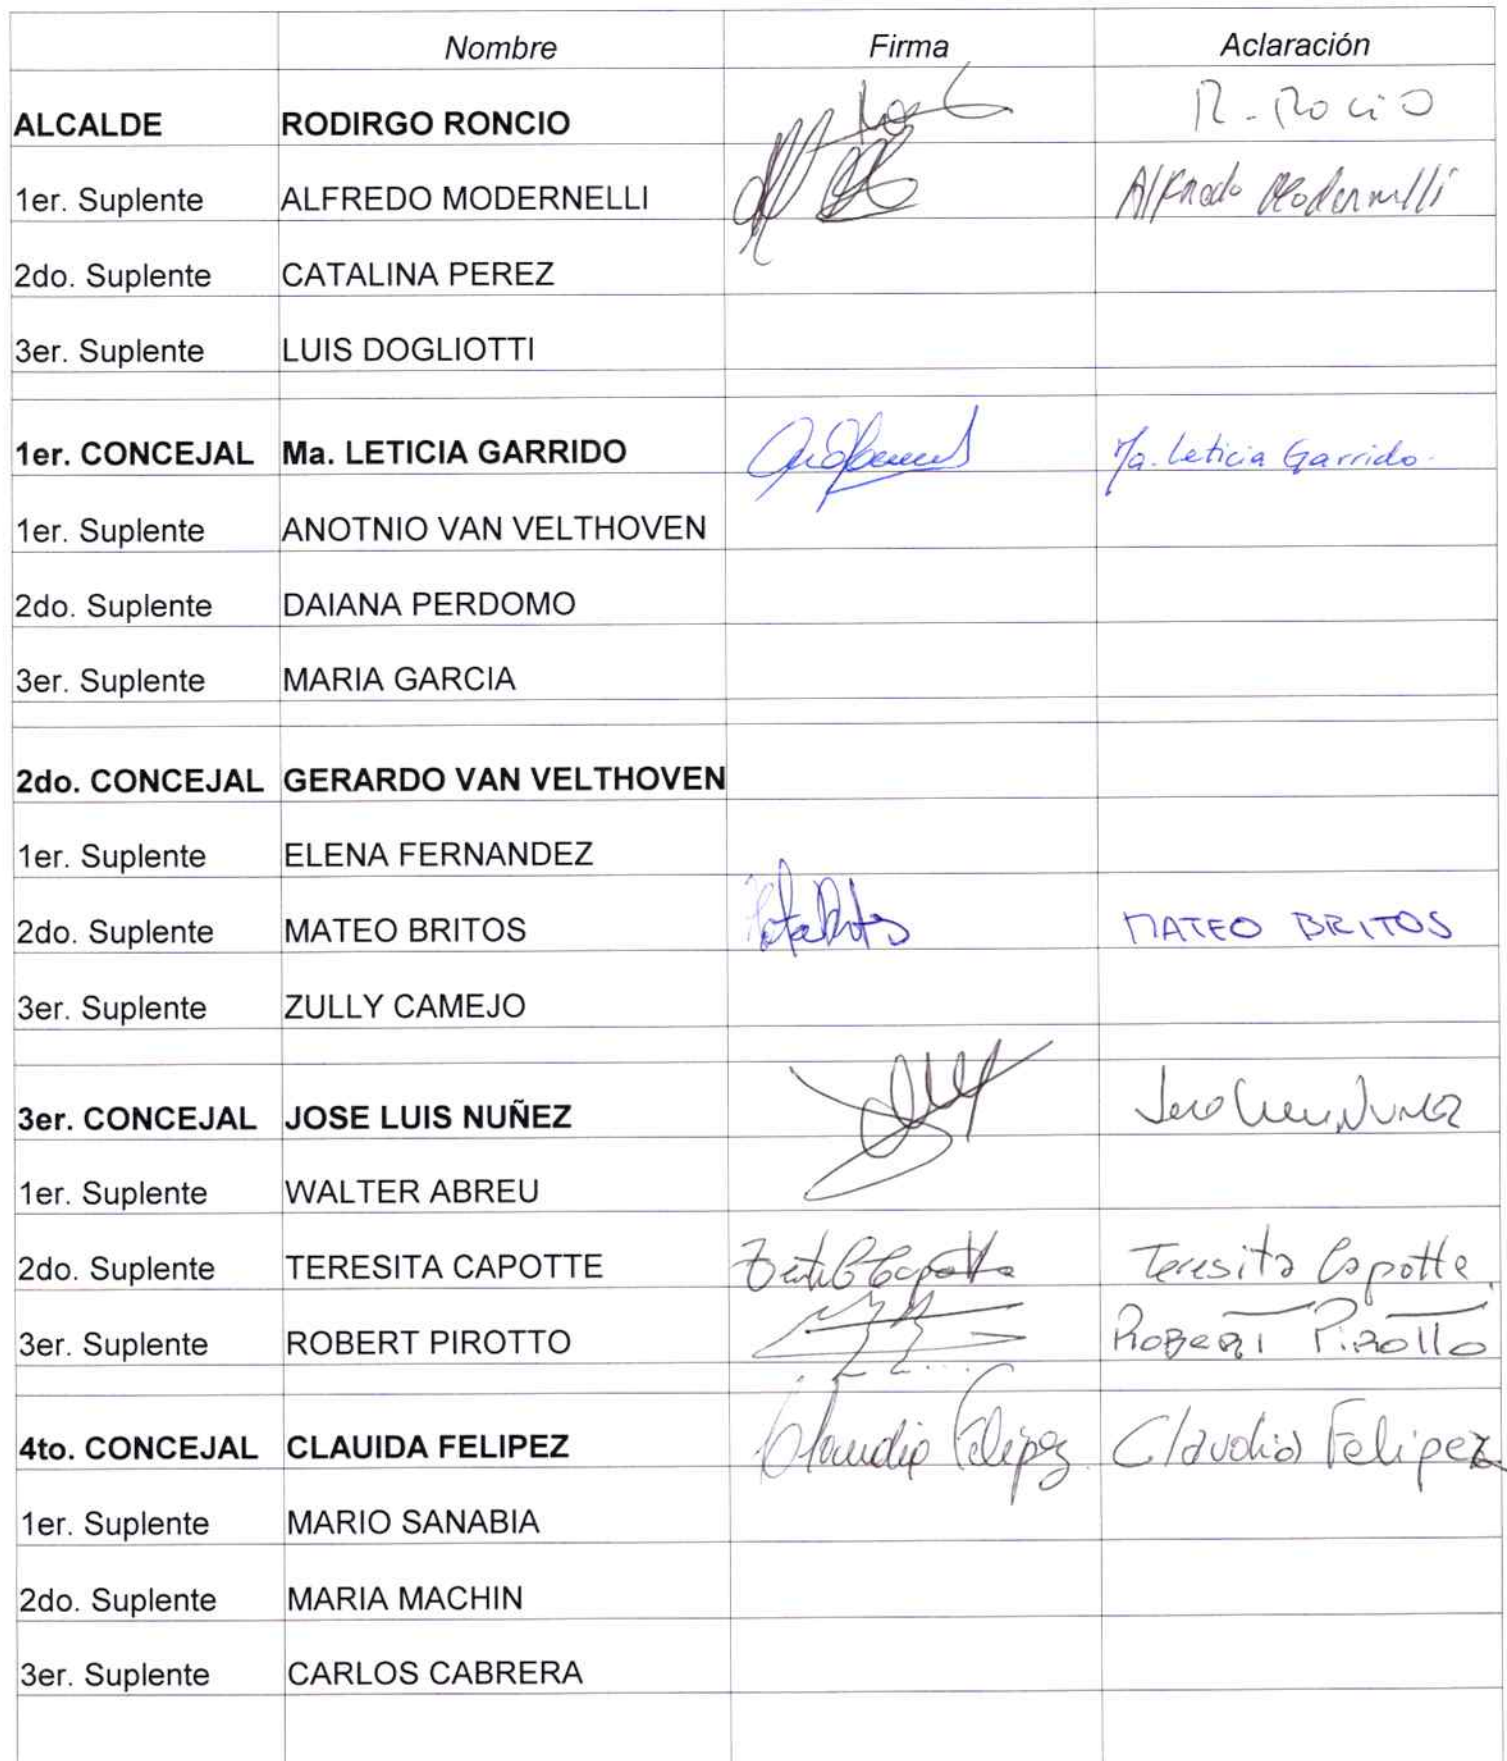 Nombre Firma Aclaración
ALCALDE RODIRGO RONCIO R. Rocio
1er. Suplente ALFREDO MODERNELLI Alfredo Modernelli
2do. Suplente CATALINA PEREZ
3er. Suplente LUIS DOGLIOTTI
1er. CONCEJAL Ma. LETICIA GARRIDO Ma. Leticia Garrido.
1er. Suplente ANOTNIO VAN VELTHOVEN
2do. Suplente DAIANA PERDOMO
3er. Suplente MARIA GARCIA
2do. CONCEJAL GERARDO VAN VELTHOVEN
1er. Suplente ELENA FERNANDEZ
2do. Suplente MATEO BRITOS MATEO BRITOS
3er. Suplente ZULLY CAMEJO
3er. CONCEJAL JOSE LUIS NUÑEZ Nuñez
1er. Suplente WALTER ABREU
2do. Suplente TERESITA CAPOTTE Teresita Capotte
3er. Suplente ROBERT PIROTTO ROBERT PIROTTO
4to. CONCEJAL CLAUIDA FELIPEZ Claudia Felipez Claudia Felipez
1er. Suplente MARIO SANABIA
2do. Suplente MARIA MACHIN
3er. Suplente CARLOS CABRERA